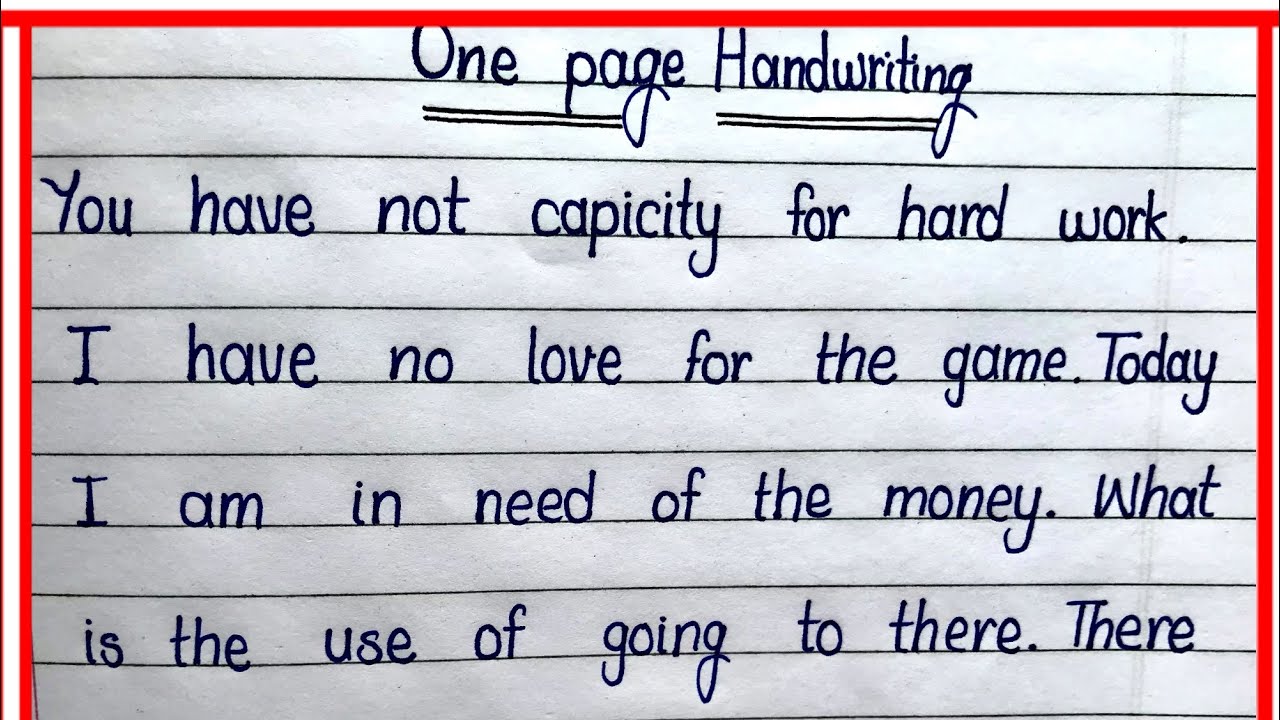 One page Handwriting
You have not capicity for hard work.
I have no love for the game. Today
I am in need of the money. What
is the use of going to there. There